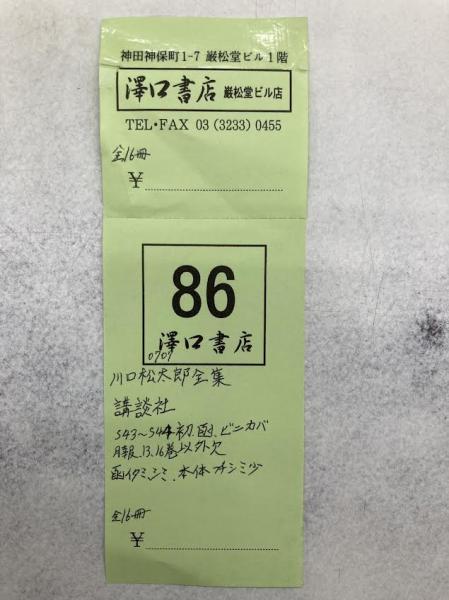 神田神保町1-7 巌松堂ビル1階
澤口書店 巌松堂ビル店
TEL・FAX 03 (3233) 0455
全16冊
¥
86
澤口書店
0707
川口松太郎全集
講談社
S43～S44 初.函.ビニカバ
月報.13.16巻以外欠
函イタミシミ.本体フチシミ少
全16冊
¥